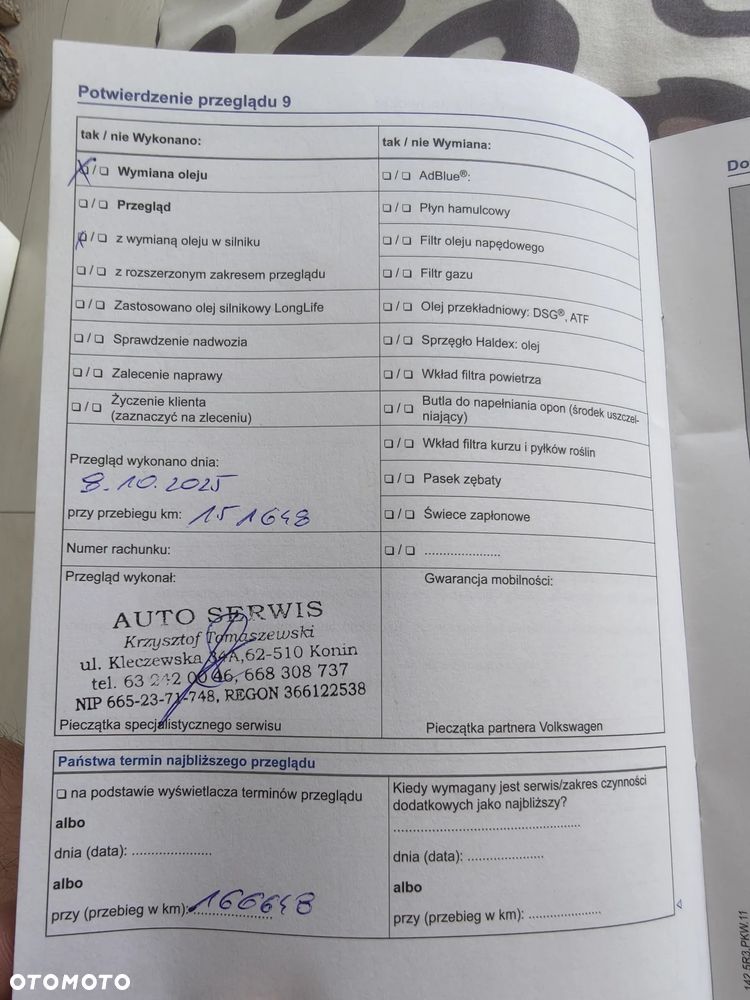 Potwierdzenie przeglądu 9
tak / nie Wykonano:
❏ / ❏ Wymiana oleju
❏ / ❏ Przegląd
❏ / ❏ z wymianą oleju w silniku
❏ / ❏ z rozszerzonym zakresem przeglądu
❏ / ❏ Zastosowano olej silnikowy LongLife
❏ / ❏ Sprawdzenie nadwozia
❏ / ❏ Zalecenie naprawy
❏ / ❏ Życzenie klienta
(zaznaczyć na zleceniu)
Przegląd wykonano dnia:
8.10.2025
przy przebiegu km: 151648
Numer rachunku:
Przegląd wykonał:
AUTO SERWIS
Krzysztof Tomaszewski
ul. Kleczewska 34A, 62-510 Konin
tel. 63 242 00 46, 668 308 737
NIP 665-23-71-748, REGON 366122538
Pieczątka specjalistycznego serwisu
tak / nie Wymiana:
❏ / ❏ AdBlue®:
❏ / ❏ Płyn hamulcowy
❏ / ❏ Filtr oleju napędowego
❏ / ❏ Filtr gazu
❏ / ❏ Olej przekładniowy: DSG®, ATF
❏ / ❏ Sprzęgło Haldex: olej
❏ / ❏ Wkład filtra powietrza
❏ / ❏ Butla do napełniania opon (środek uszczel-
niający)
❏ / ❏ Wkład filtra kurzu i pyłków roślin
❏ / ❏ Pasek zębaty
❏ / ❏ Świece zapłonowe
❏ / ❏ .....................
Gwarancja mobilności:
Pieczątka partnera Volkswagen
Państwa termin najbliższego przeglądu
❏ na podstawie wyświetlacza terminów przeglądu
albo
dnia (data): .....................
albo
przy (przebieg w km): 166648
Kiedy wymagany jest serwis/zakres czynności
dodatkowych jako najbliższy?
..................................................
dnia (data): .....................
albo
przy (przebieg w km): ....................
Do
142.5R3.PKW.11
OTOMOTO